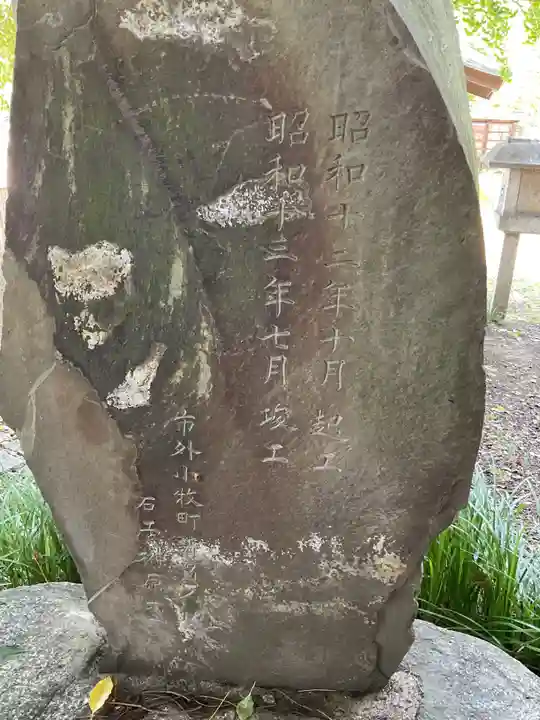 昭和十二年十月起工
昭和十三年七月竣工
市外小牧町
石工